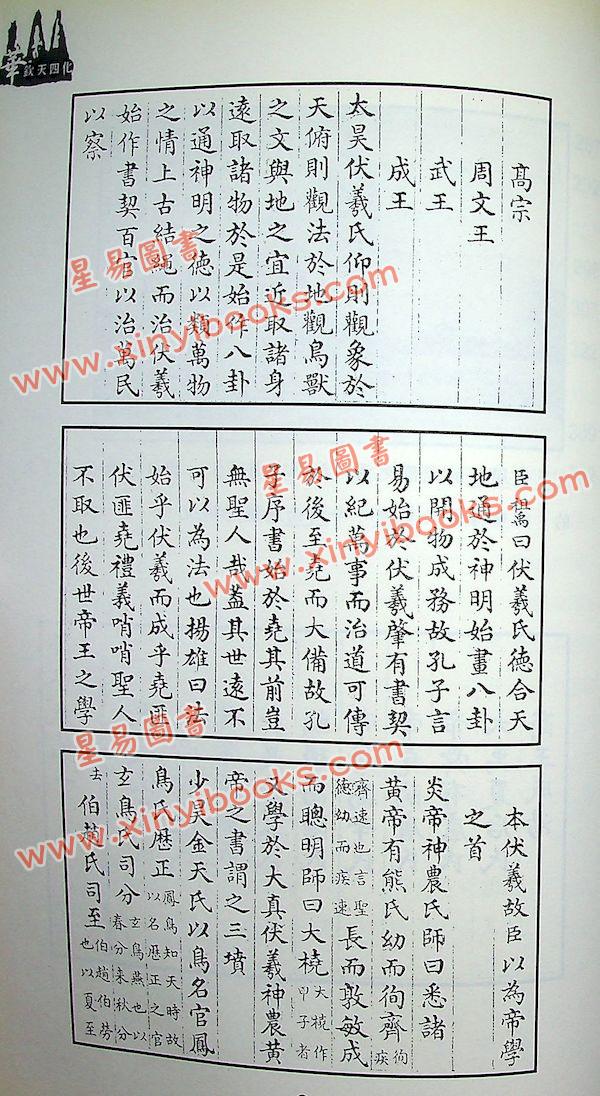 華
欽天四化
高宗
周文王
武王
成王
太昊伏羲氏仰則觀象於
天俯則觀法於地觀鳥獸
之文與地之宜近取諸身
遠取諸物於是始作八卦
以通神明之徳以類萬物
之情上古結繩而治伏羲
始作書契百官以治萬民
以察
臣祖禹曰伏羲氏徳合天
地通於神明始畫八卦
以開物成務故孔子言
易始於伏羲肇有書契
以紀萬事而治道可傳
於後至堯而大備故孔
子序書始於堯其前豈
無聖人哉蓋其世逺不
可以為法也揚雄曰法
始乎伏羲而成乎堯匪
伏匪堯禮義哨哨聖人
不取也後世帝王之學
本伏羲故臣以為帝學
之首
炎帝神農氏師曰悉諸
黃帝有熊氏幼而徇齊徇疾
齊速也言聖徳幼而疾速長而敦敏成
而聰明師曰大橈大橈作甲子者
又學於大真伏羲神農黃
帝之書謂之三墳
少昊金天氏以鳥名官鳳
鳥氏厯正鳳鳥知天時故以名厯正之官
玄鳥氏司分玄鳥燕也以春分来秋分
去伯趙氏司至伯趙伯勞也以夏至
星易圖書
www.xinyibooks.com
星易圖書
www.xinyibooks.com
星易圖書
www.xinyibooks.com